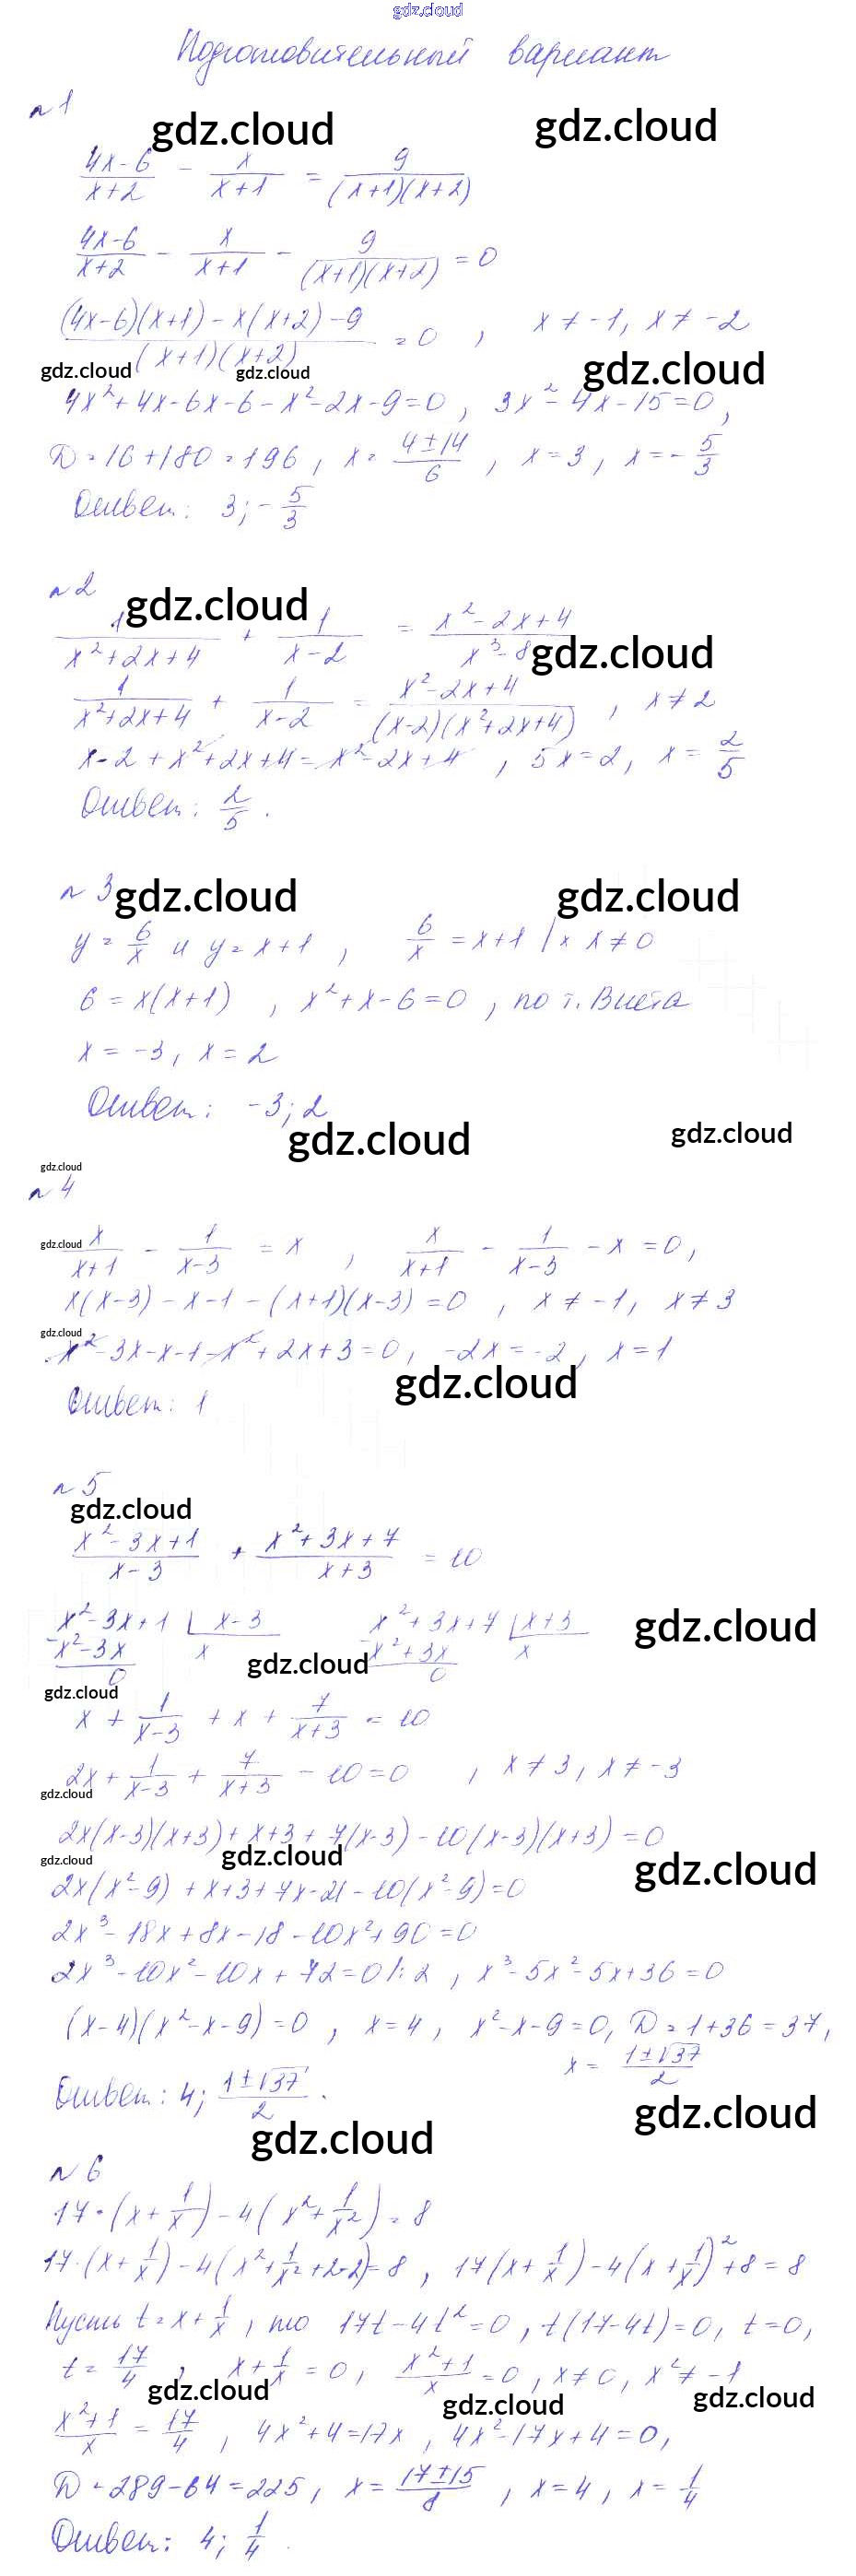 gdz.cloud
Подготовительный вариант
n 1
gdz.cloud gdz.cloud
(4x-6)/(x+2) - x/(x+1) = 9/((x+1)(x+2))
(4x-6)/(x+2) - x/(x+1) - 9/((x+1)(x+2)) = 0
((4x-6)(x+1) - x(x+2) - 9)/((x+1)(x+2)) = 0 , x ≠ -1, x ≠ -2
gdz.cloud gdz.cloud gdz.cloud
4x² + 4x - 6x - 6 - x² - 2x - 9 = 0 , 3x² - 4x - 15 = 0 ,
D = 16 + 180 = 196 , x = (4 ± 14)/6 , x = 3 , x = - 5/3
Ответ: 3; - 5/3
n 2
gdz.cloud
1/(x²+2x+4) + 1/(x-2) = (x²-2x+4)/(x³-8)
gdz.cloud
1/(x²+2x+4) + 1/(x-2) = (x²-2x+4)/((x-2)(x²+2x+4)) , x ≠ 2
x - 2 + x² + 2x + 4 = x² - 2x + 4 , 5x = 2, x = 2/5
Ответ: 2/5 .
n 3
gdz.cloud gdz.cloud
y = 6/x и y = x + 1 , 6/x = x + 1 | × x ≠ 0
6 = x(x+1) , x² + x - 6 = 0 , по т. Виета
x = -3, x = 2
Ответ: -3; 2
gdz.cloud gdz.cloud
gdz.cloud
n 4
gdz.cloud
x/(x+1) - 1/(x-3) = x , x/(x+1) - 1/(x-3) - x = 0 ,
x(x-3) - x - 1 - (x+1)(x-3) = 0 , x ≠ -1, x ≠ 3
gdz.cloud
x² - 3x - x - 1 - x² + 2x + 3 = 0, -2x = -2 , x = 1
gdz.cloud
Ответ: 1
n 5
gdz.cloud
(x²-3x+1)/(x-3) + (x²+3x+7)/(x+3) = 10
x² - 3x + 1 | x - 3 x² + 3x + 7 | x + 3
gdz.cloud
- x² - 3x x - x² + 3x x
gdz.cloud
0 0
gdz.cloud
x + 1/(x-3) + x + 7/(x+3) = 10
2x + 1/(x-3) + 7/(x+3) - 10 = 0 , x ≠ 3, x ≠ -3
gdz.cloud
2x(x-3)(x+3) + x+3 + 7(x-3) - 10(x-3)(x+3) = 0
gdz.cloud gdz.cloud gdz.cloud
2x(x²-9) + x+3 + 7x-21 - 10(x²-9) = 0
2x³ - 18x + 8x - 18 - 10x² + 90 = 0
2x³ - 10x² - 10x + 72 = 0 |: 2 , x³ - 5x² - 5x + 36 = 0
(x-4)(x²-x-9) = 0 , x = 4 , x² - x - 9 = 0, D = 1 + 36 = 37,
x = (1 ± √37)/2
Ответ: 4; (1 ± √37)/2 .
gdz.cloud
gdz.cloud
n 6
17 · (x + 1/x) - 4(x² + 1/x²) = 8
17 · (x + 1/x) - 4(x² + 1/x² + 2 - 2) = 8 , 17(x + 1/x) - 4(x + 1/x)² + 8 = 8
Пусть t = x + 1/x , то 17t - 4t² = 0 , t(17-4t) = 0, t = 0,
t = 17/4 , x + 1/x = 0, (x²+1)/x = 0 , x ≠ 0 , x² ≠ -1
gdz.cloud gdz.cloud gdz.cloud
(x²+1)/x = 17/4 , 4x² + 4 = 17x , 4x² - 17x + 4 = 0,
D = 289 - 64 = 225 , x = (17 ± 15)/8 , x = 4 , x = 1/4
Ответ: 4; 1/4 .